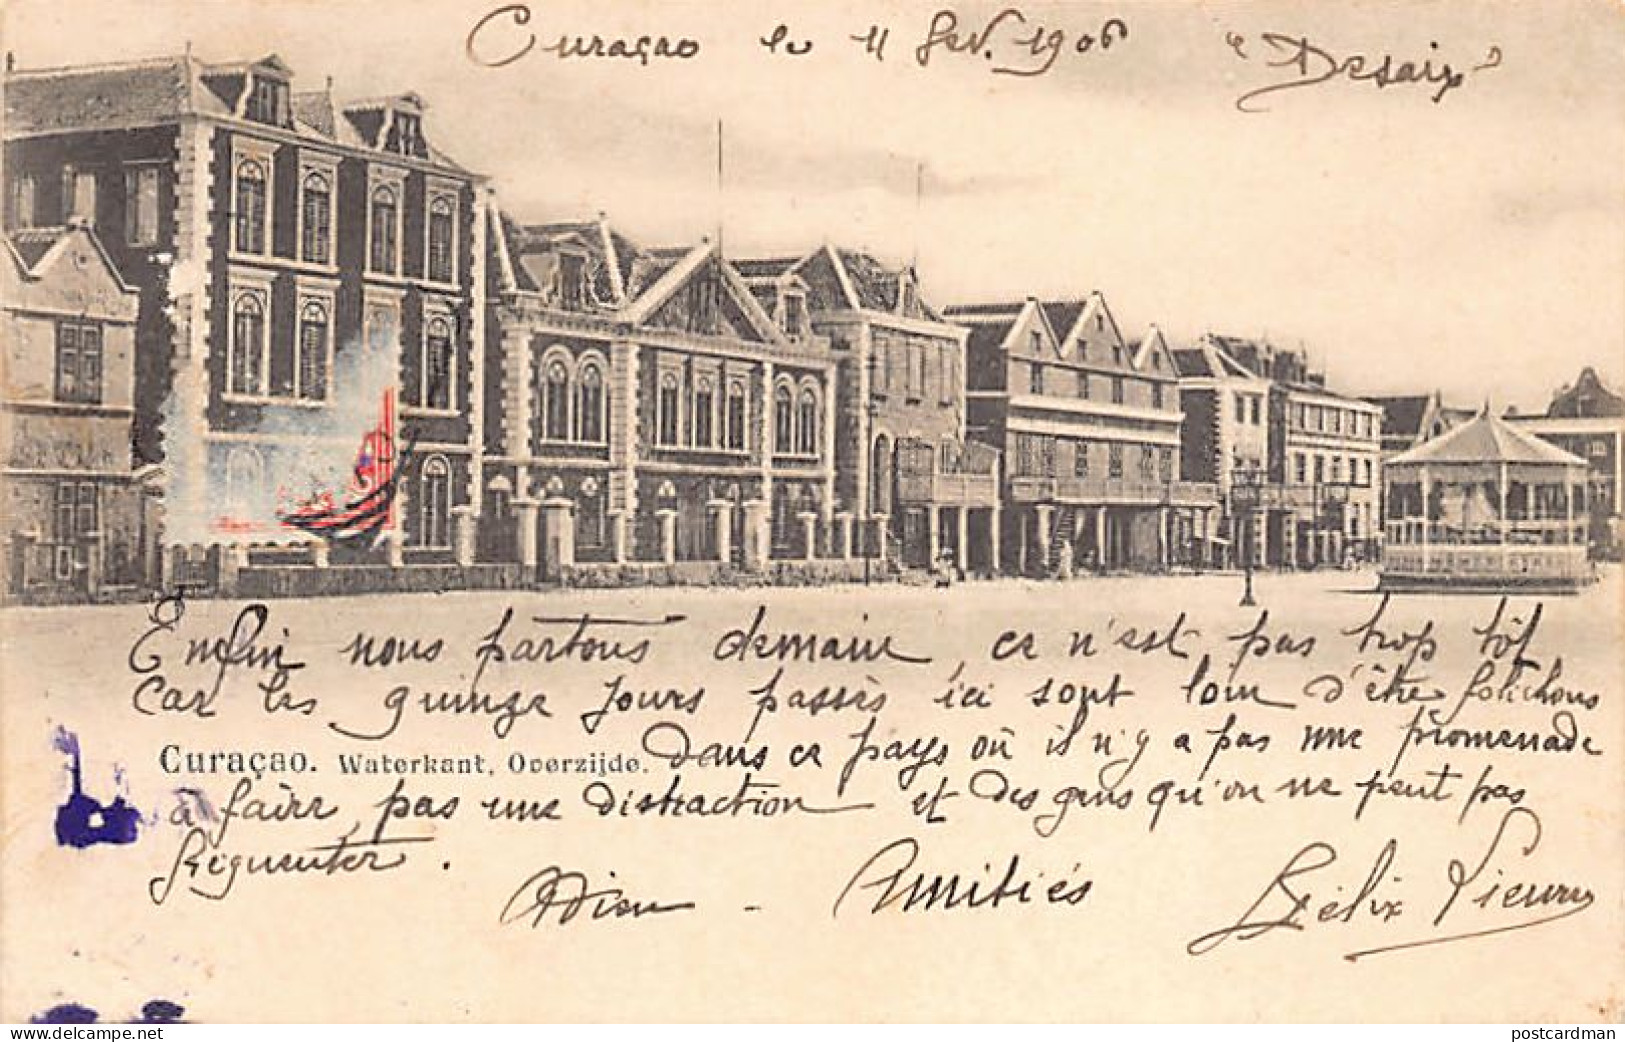 Curaçao le 11 fev. 1906 "Desaix"
Enfin nous partons demain ce n'est pas trop tôt
car les quinze jours passés ici sont loin d'être folichons
Curaçao. Waterkant, Overzijde.
Dans ce pays où il n'y a pas une promenade
à faire, pas une distraction et des gens qu'on ne peut pas
fréquenter.
Adieu - Amitiés Félix
postcardman
www.delcampe.net